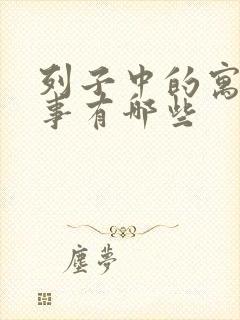 列子中的寓
事有哪些
塵夢